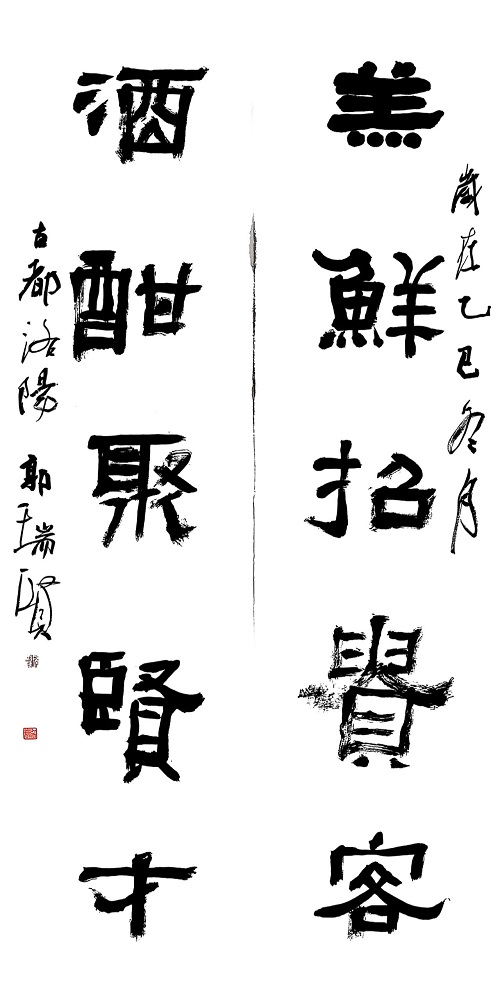 歲在乙巳冬月
羔鮮招貴客
酒酣聚賢才
古都洛陽 郭瑞賢